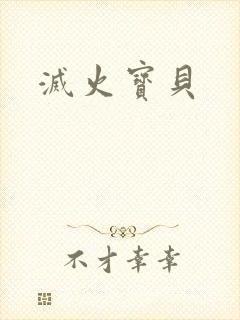 滅火寶貝
不才幸幸